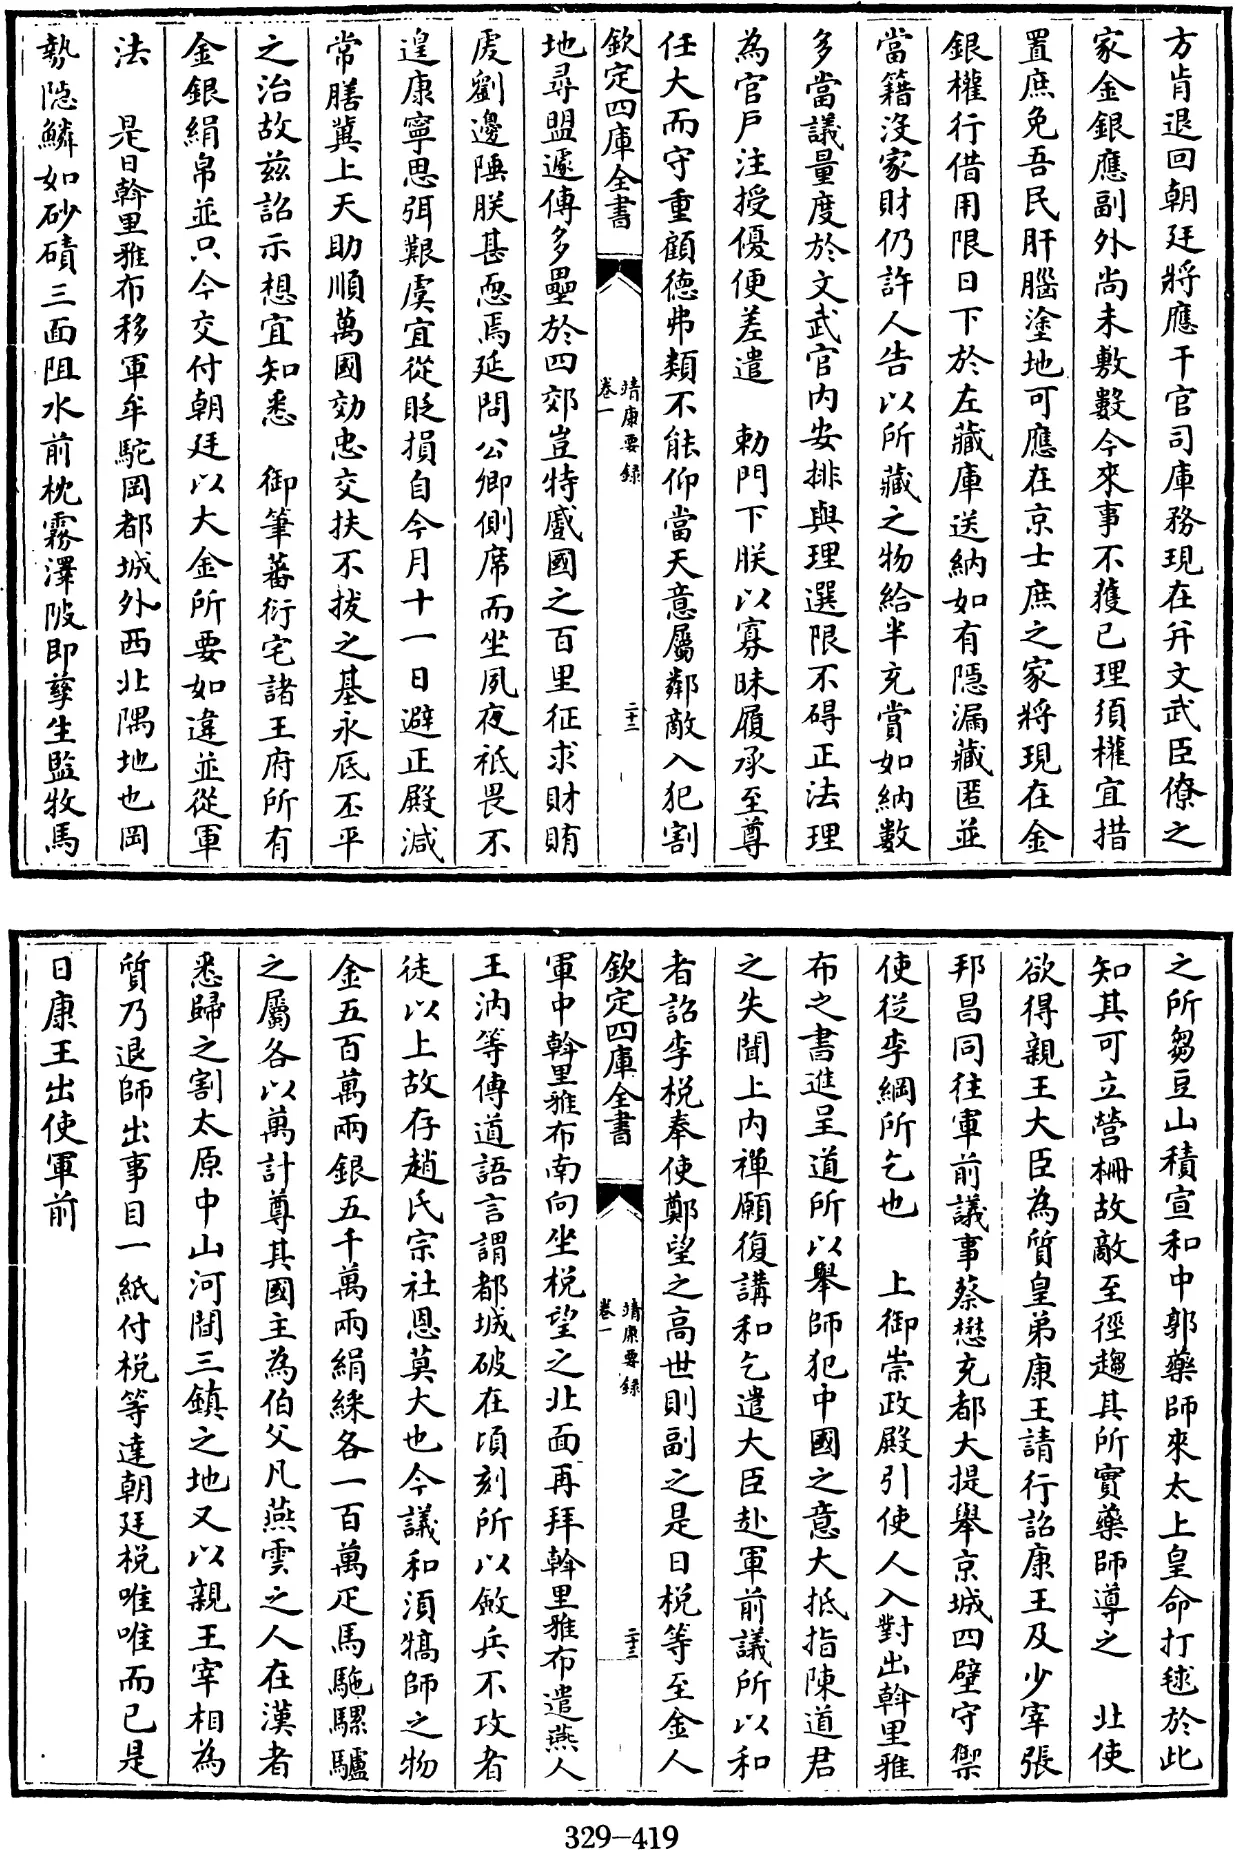 方肯退回朝廷將應干官司庫務現在并文武臣僚之
家金銀應副外尚未敷數今來事不獲已理須權宜措
置庶免吾民肝腦塗地可應在京士庶之家將現在金
銀權行借用限日下於左藏庫送納如有隱漏藏匿並
當籍沒家財仍許人告以所藏之物給半充賞如納數
多當議量度於文武官內安排與理選限不碍正法理
為官戶注授優便差遣　勅門下朕以寡昧履承至尊
任大而守重顧德弗類不能仰當天意屬鄰敵入犯割
欽定四庫全書
靖康要録
卷一
二十二
地尋盟遽傳多壘於四郊豈特蹙國之百里征求財賄
虔劉邊陲朕甚恧焉延問公卿側席而坐夙夜祗畏不
遑康寧思弭艱虞宜從貶損自今月十一日避正殿減
常膳冀上天助順萬國効忠交扶不拔之基永底丕平
之治故兹詔示想宜知悉　御筆蕃衍宅諸王府所有
金銀絹帛並只今交付朝廷以大金所要如違並從軍
法　是日斡里雅布移軍牟駝岡都城外西北隅地也岡
勢隱鱗如砂磧三面阻水前枕霧澤陂即孳生監牧馬
之所芻豆山積宣和中郭藥師來太上皇命打毬於此
知其可立營柵故敵至徑趨其所實藥師導之　北使
欲得親王大臣為質皇弟康王請行詔康王及少宰張
邦昌同往軍前議事蔡懋充都大提舉京城四壁守禦
使從李綱所乞也　上御崇政殿引使人入對出斡里雅
布之書進呈道所以舉師犯中國之意大抵指陳道君
之失聞上內禪願復講和乞遣大臣赴軍前議所以和
者詔李梲奉使鄭望之高世則副之是日梲等至金人
欽定四庫全書
靖康要録
卷一
二十三
軍中斡里雅布南向坐梲望之北面再拜斡里雅布遣燕人
王汭等傳道語言謂都城破在頃刻所以斂兵不攻者
徒以上故存趙氏宗社恩莫大也今議和須犒師之物
金五百萬兩銀五千萬兩絹綵各一百萬疋馬駞騾驢
之屬各以萬計尊其國主為伯父凡燕雲之人在漢者
悉歸之割太原中山河間三鎮之地又以親王宰相為
質乃退師出事目一紙付梲等達朝廷梲唯唯而已是
日康王出使軍前
329-419